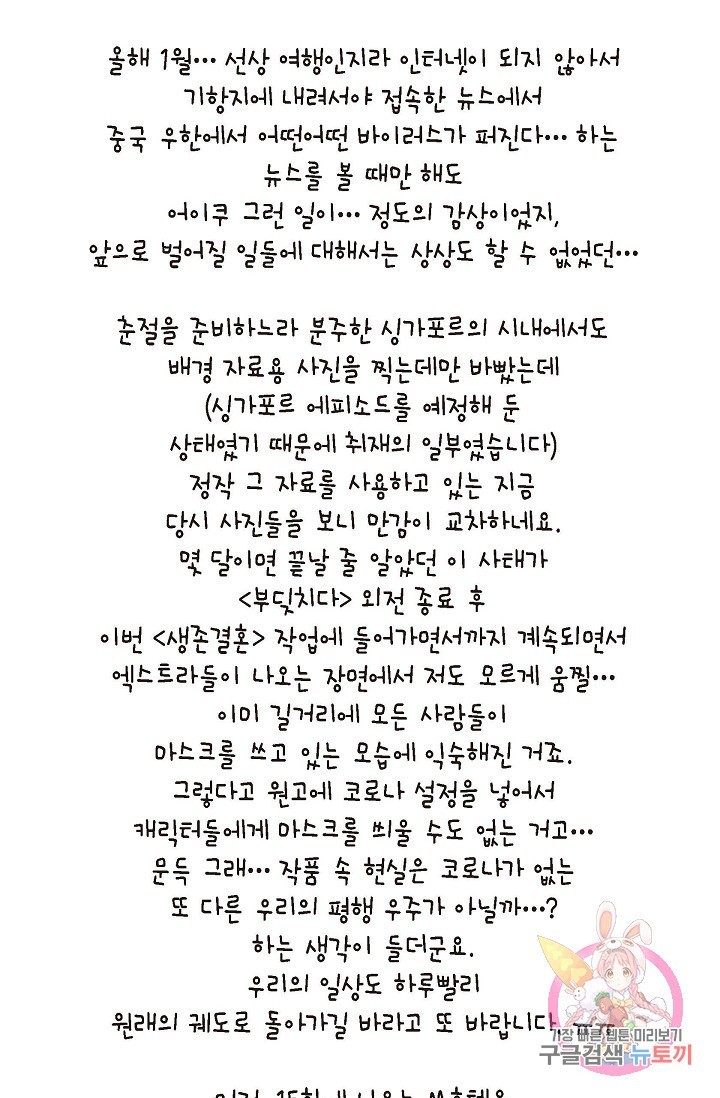 올해 1월… 선상 여행인지라 인터넷이 되지 않아서
기항지에 내려서야 접속한 뉴스에서
중국 우한에서 어떤어떤 바이러스가 퍼진다… 하는
뉴스를 볼 때만 해도
어이쿠 그런 일이… 정도의 감상이었지,
앞으로 벌어질 일들에 대해서는 상상도 할 수 없었던…
춘절을 준비하느라 분주한 싱가포르의 시내에서도
배경 자료용 사진을 찍는데만 바빴는데
(싱가포르 에피소드를 예정해 둔
상태였기 때문에 취재의 일부였습니다)
정작 그 자료를 사용하고 있는 지금
당시 사진들을 보니 만감이 교차하네요.
몇 달이면 끝날 줄 알았던 이 사태가
<부딪치다> 외전 종료 후
이번 <생존결혼> 작업에 들어가면서까지 계속되면서
엑스트라들이 나오는 장면에서 저도 모르게 움찔…
이미 길거리에 모든 사람들이
마스크를 쓰고 있는 모습에 익숙해진 거죠.
그렇다고 원고에 코로나 설정을 넣어서
캐릭터들에게 마스크를 씌울 수도 없는 거고…
문득 그래… 작품 속 현실은 코로나가 없는
또 다른 우리의 평행 우주가 아닐까…?
하는 생각이 들더군요.
우리의 일상도 하루빨리
원래의 궤도로 돌아가길 바라고 또 바랍니다. ㅠㅠ
가장 빠른 웹툰 미리보기
구글검색 뉴토끼